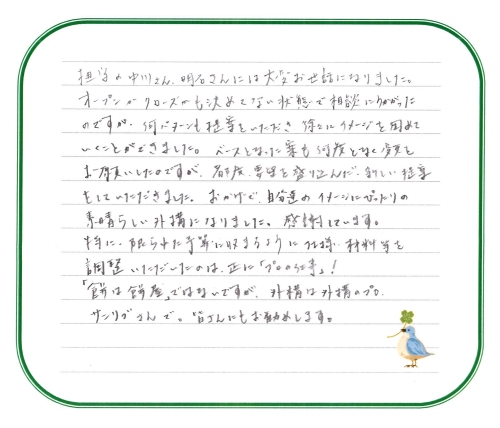 担当の中川さん、明石さんには大変お世話になりました。
オープンかクローズかも決めてない状態で相談にうかがった
のですが、何パターンも提案をいただき 徐々にイメージを固めて
いくことができました。ベースとなった案も何度となく変更を
お願いしたのですが、都度、要望を盛り込んだ、新しい提案
をしていただきました。おかげで、自分達のイメージにぴったりの
素晴らしい外構になりました。感謝しています。
特に、限られた予算に収まるように仕様、材料等を
調整いただいたのは、正に「プロの仕事」！
「餅は餅屋」ではないですが、外構は外構のプロ、
サンリブさんで。皆さんにもお勧めします。